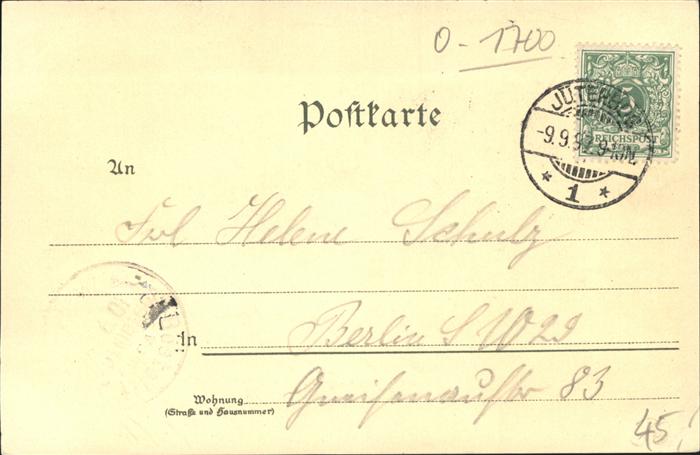 O-1700
5
REICHSPOST
JÜTERBOG
-9.9.9
* 1 *
Postkarte
An
Frl Helene Schulz
In
Berlin S W 29
Wohnung
(Straße und Hausnummer)
Gneisenaustr 83
45,-